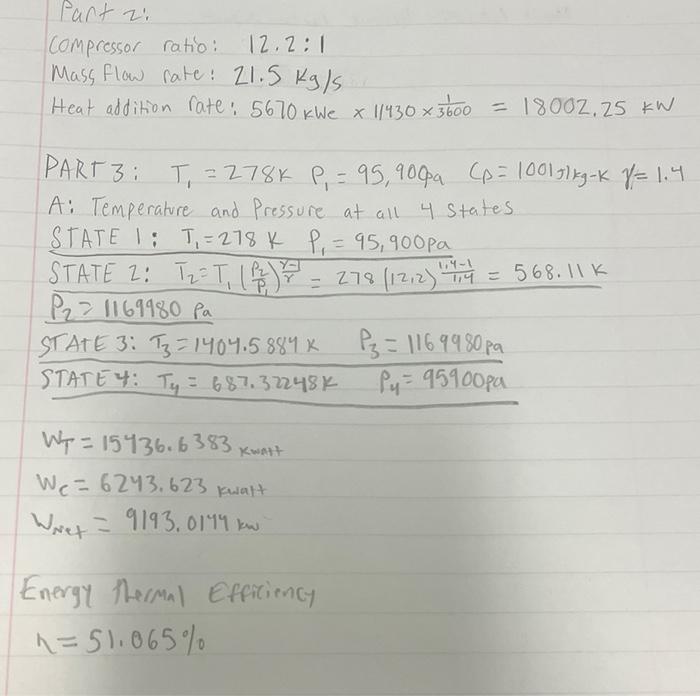 Part 2:
Compressor ratio: 12.2:1
Mass Flow rate: 21.5 Kg/s
Heat addition rate: 5670 kWe × 11430 × 1/3600 = 18002.25 kW
PART 3: T₁ = 278K P₁ = 95,900pa Cp = 1001 J/kg-K γ = 1.4
A: Temperature and Pressure at all 4 States
STATE 1: T₁ = 278 K P₁ = 95,900pa
STATE 2: T₂ = T₁ (P₂/P₁)^(γ-1/γ) = 278 (12.2)^(1.4-1/1.4) = 568.11 K
P₂ = 1169980 Pa
STATE 3: T₃ = 1404.5884 K P₃ = 1169980pa
STATE 4: T₄ = 687.32248K P₄ = 95900pa
W_T = 15436.6383 Kwatt
W_C = 6243.623 Kwatt
W_Net = 9193.0144 kw
Energy Thermal Efficiency
η = 51.065%